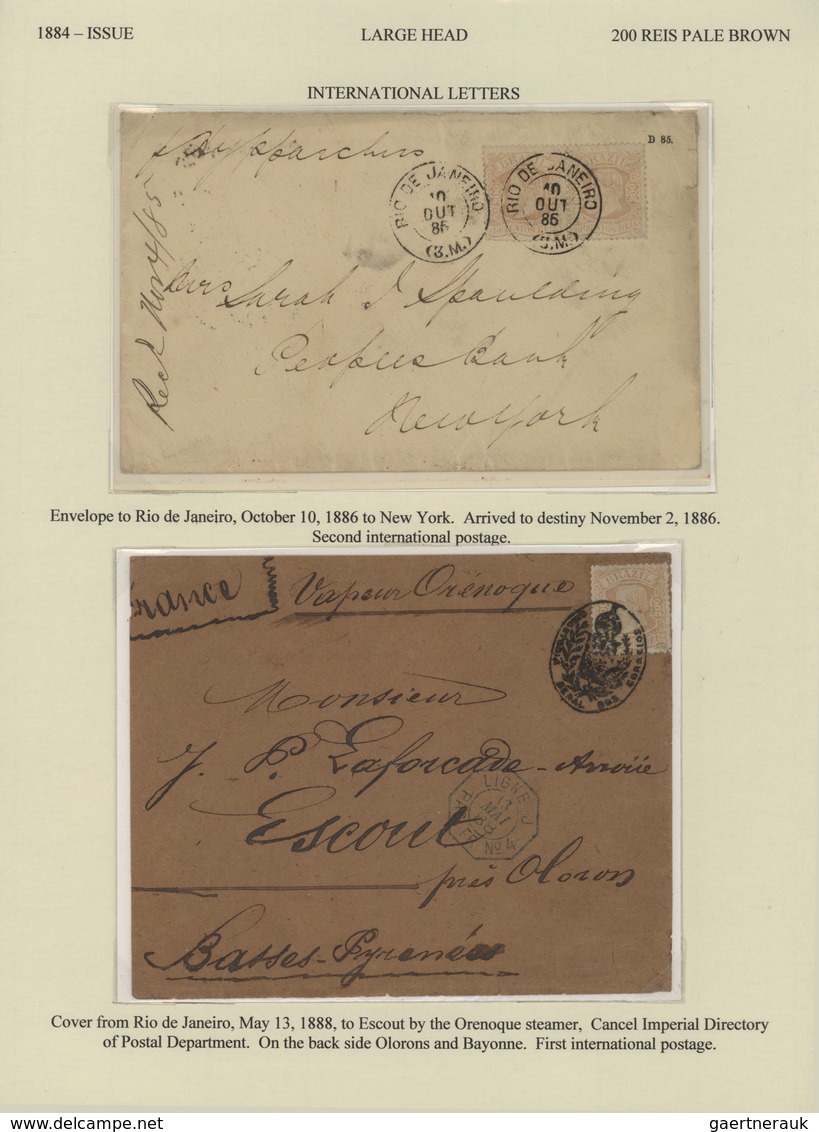 1884 – ISSUE LARGE HEAD 200 REIS PALE BROWN
INTERNATIONAL LETTERS
D 85.
RIO DE JANEIRO
10
OUT
86
(3.M.)
RIO DE JANEIRO
10
OUT
86
(3.M.)
BRAZIL
Mrs Sarah J Spaulding
Peoples Bank
New York
Envelope to Rio de Janeiro, October 10, 1886 to New York. Arrived to destiny November 2, 1886.
Second international postage.
France
Vapeur Orénoque
BRAZIL
GERAL DOS CORREIOS
Monsieur
J. P. Laforcade-Arroüe
LIGNE J
13
MAI
88
PAQ. FR. Nº 4
Escout
près Oloron
Basses-Pyrenées
Cover from Rio de Janeiro, May 13, 1888, to Escout by the Orenoque steamer, Cancel Imperial Directory
of Postal Department. On the back side Olorons and Bayonne. First international postage.
DELCAMPE.NET
gaertnerauk